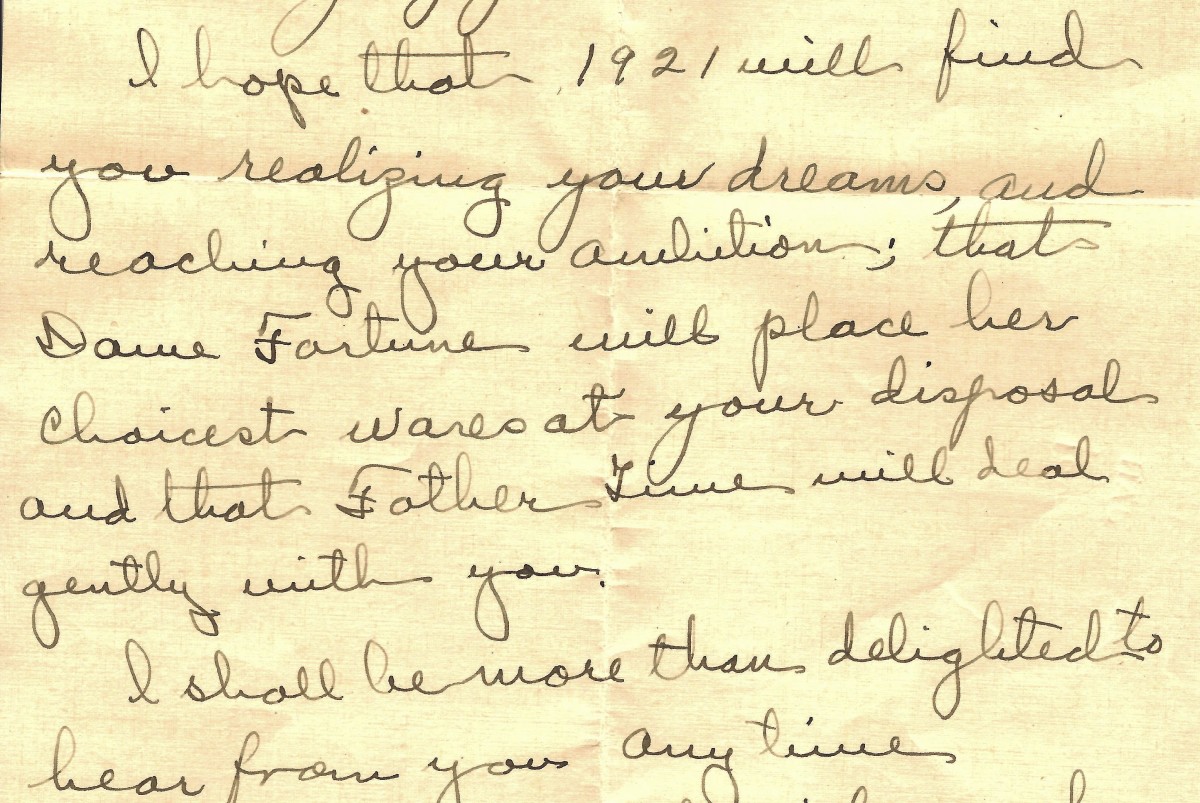 I hope that 1921 will find
you realizing your dreams, and
reaching your ambition; that
Dame Fortune will place her
choicest wares at your disposal
and that Father Time will deal
gently with you.
I shall be more than delighted to
hear from you any time